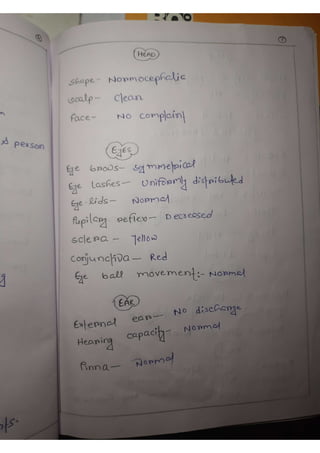 HEAD
Shape - Normocephalic
Scalp - Clean
Face - No complaint
EYES
Eye brows - symmetrical
Eye lashes - Uniformly distributed
Eye lids - Normal
Pupilary reflex - Decreased
Sclera - Yellow
Conjunctiva - Red
Eye ball movement:- Normal
EAR
External ear - No discharge
Hearing capacity - Normal
Pinna - Normal
person